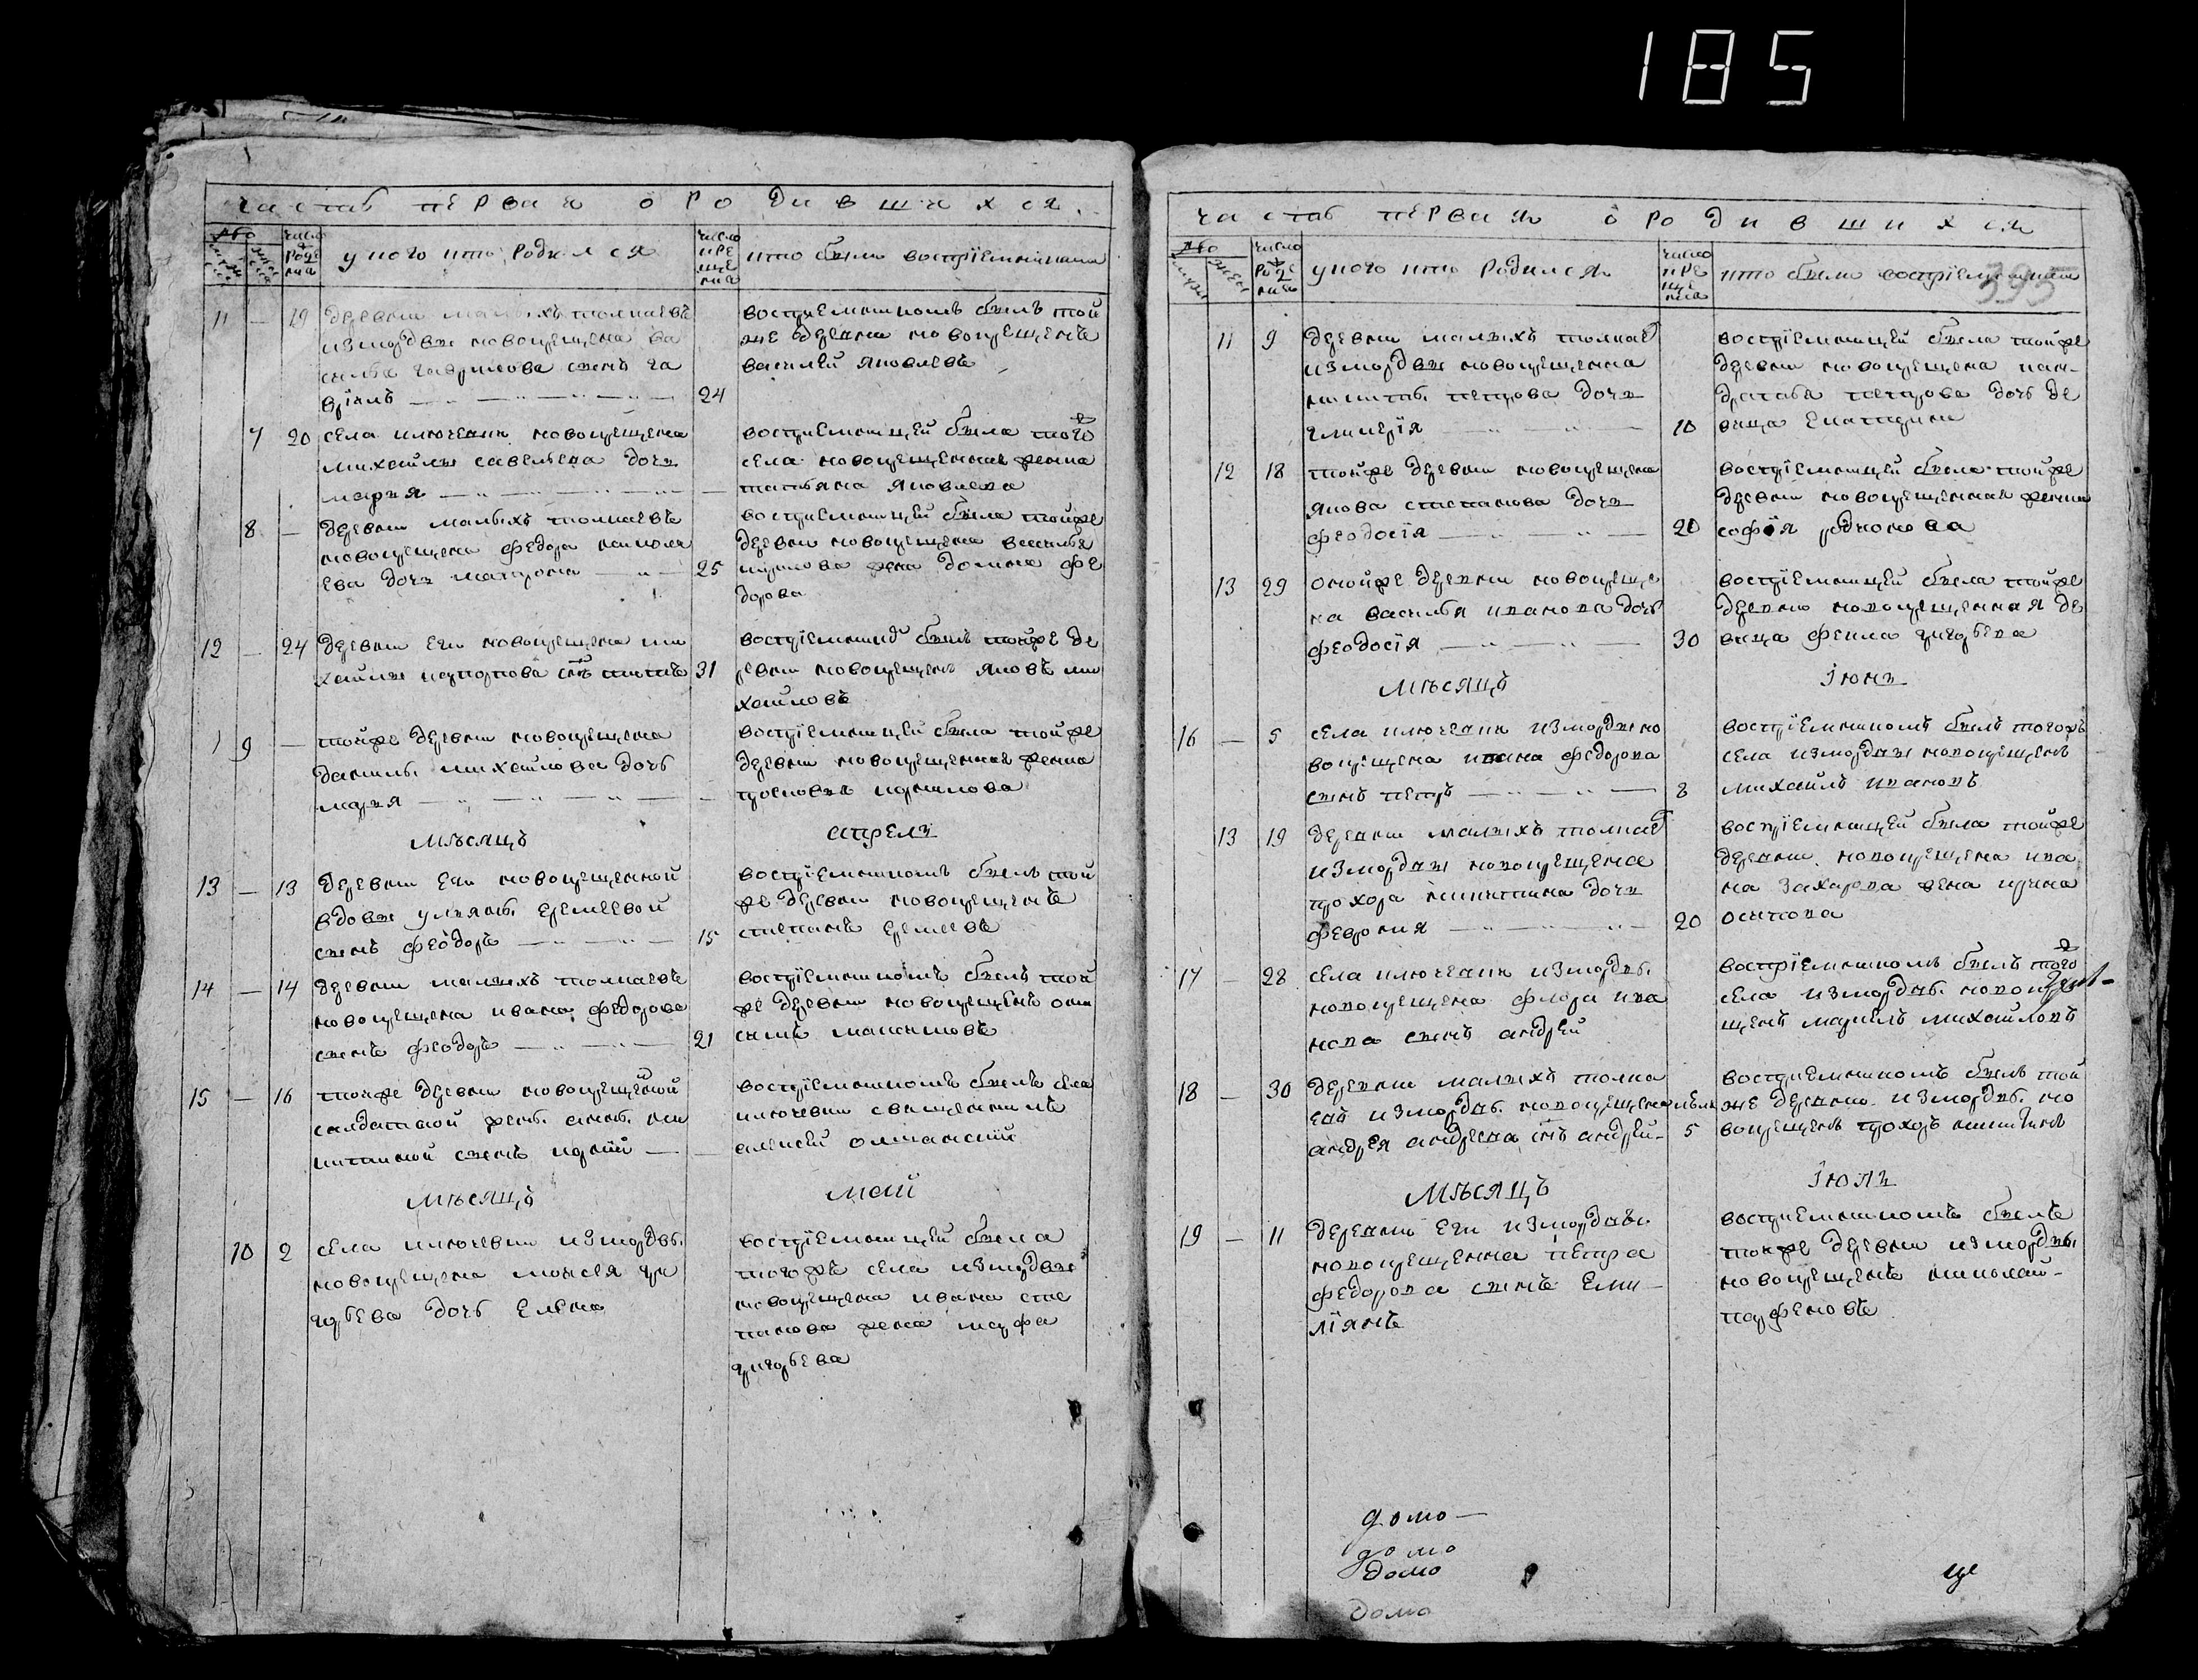 185
часть первая о родившихся
чис
ло
рож
де
ния
у кого кто родился
число
кре
ще
ния
кто были восприемниками
11 — 19 деревни малыхъ толкаевъ
из мордвы новокрещена ва
силья гаврилова сынъ га
вріилъ 24
восприемникомъ былъ той
же деревни новокрещенъ
василей яковлевъ
7 20 села ключевки новокрещена
михайлы савельева дочь
марья —
восприемницей была того
села новокрещенная женка
татьяна яковлева
8 — деревни малыхъ толкаевъ
новокрещена федора никола
ева дочь матрона 25
восприемницей была тойже
деревни новокрещена василья
жена домна фе
дорова
12 — 24 деревни еги новокрещена ми
хайлы 31
воспріемник былъ тойже де
ревни новокрещенъ яковъ ми
хайловъ
9 — тойже деревни новокрещена
данилы михайлова дочь
марья —
воспріемницей была тойже
деревни новокрещенная женка
прасковья корнилова
мѣсяцъ апрель
13 — 13 деревни еги новокрещенной
вдовы ульяны еремеевой
сынъ феодоръ 15
воспріемникомъ былъ той
же деревни новокрещенъ
степанъ еремеевъ
14 — 14 деревни малыхъ толкаевъ
новокрещена ивана федорова
сынъ феодоръ 21
воспріемникомъ былъ той
же деревни новокрещенъ
максимовъ
15 — 16 тойже деревни новокрещеной
солдатской жены анны ни
китиной сынъ —
воспріемникомъ былъ села
ключевки священникъ
алексей
мѣсяцъ май
10 2 села ключевки из мордвы
новокрещена моисея гри
горьева дочь елена
воспріемницей была
тогожъ села из мордвы
новокрещена ивана сте
панова жена марфа
григорьева
часть первая о родившихся
число
рож
де
ния
у кого кто родился
число
кре
ще
ния
кто были воспріемниками
395
11 9 деревни малыхъ толкае
из мордвы новокрещенна
никиты петрова дочь
гликерія 10
воспріемницей была тойже
деревни новокрещена кон-
дратья петрова дочь де
вица екатерина
12 18 тойже деревни новокрещена
якова степанова дочь
феодосія 20
воспріемницей была тойже
деревни новокрещенная женка
софія родионова
13 29 онойже деревни новокреще
на василья иванова дочь
феодосія 30
воспріемницей была тойже
деревни новокрещенная де
вица фекла григорьева
мѣсяцъ іюнь
16 — 5 села ключевки из мордвы но
вокрещена ивана федорова
сынъ петръ 8
воспріемникомъ былъ тогожъ
села из мордвы новокрещенъ
михайлъ ивановъ
13 19 деревни малыхъ толкае
из мордвы новокрещена
прохора никитина дочь
феврония 20
воспріемницей была тойже
деревни новокрещена ива
на захарова жена ирина
осипова
17 — 28 села ключевки из мордвы
новокрещена флора ива
нова сынъ андрей
воспріемникомъ былъ того
села из мордвы новокре
щенъ михайловъ
18 — 30 деревни малыхъ толка
евъ из мордвы новокрещена
андрея андреева сынъ андрей 5
восприемникомъ былъ той
же деревни из мордвы но
вокрещенъ прохоръ никитинъ
мѣсяцъ іюль
19 — 11 деревни еги из мордвы
новокрещенна петра
федорова сынъ еми-
ліянъ
восприемникомъ былъ
тойже деревни из мордвы
новокрещенъ николай
парфеновъ
домо —
домо
домо
домо